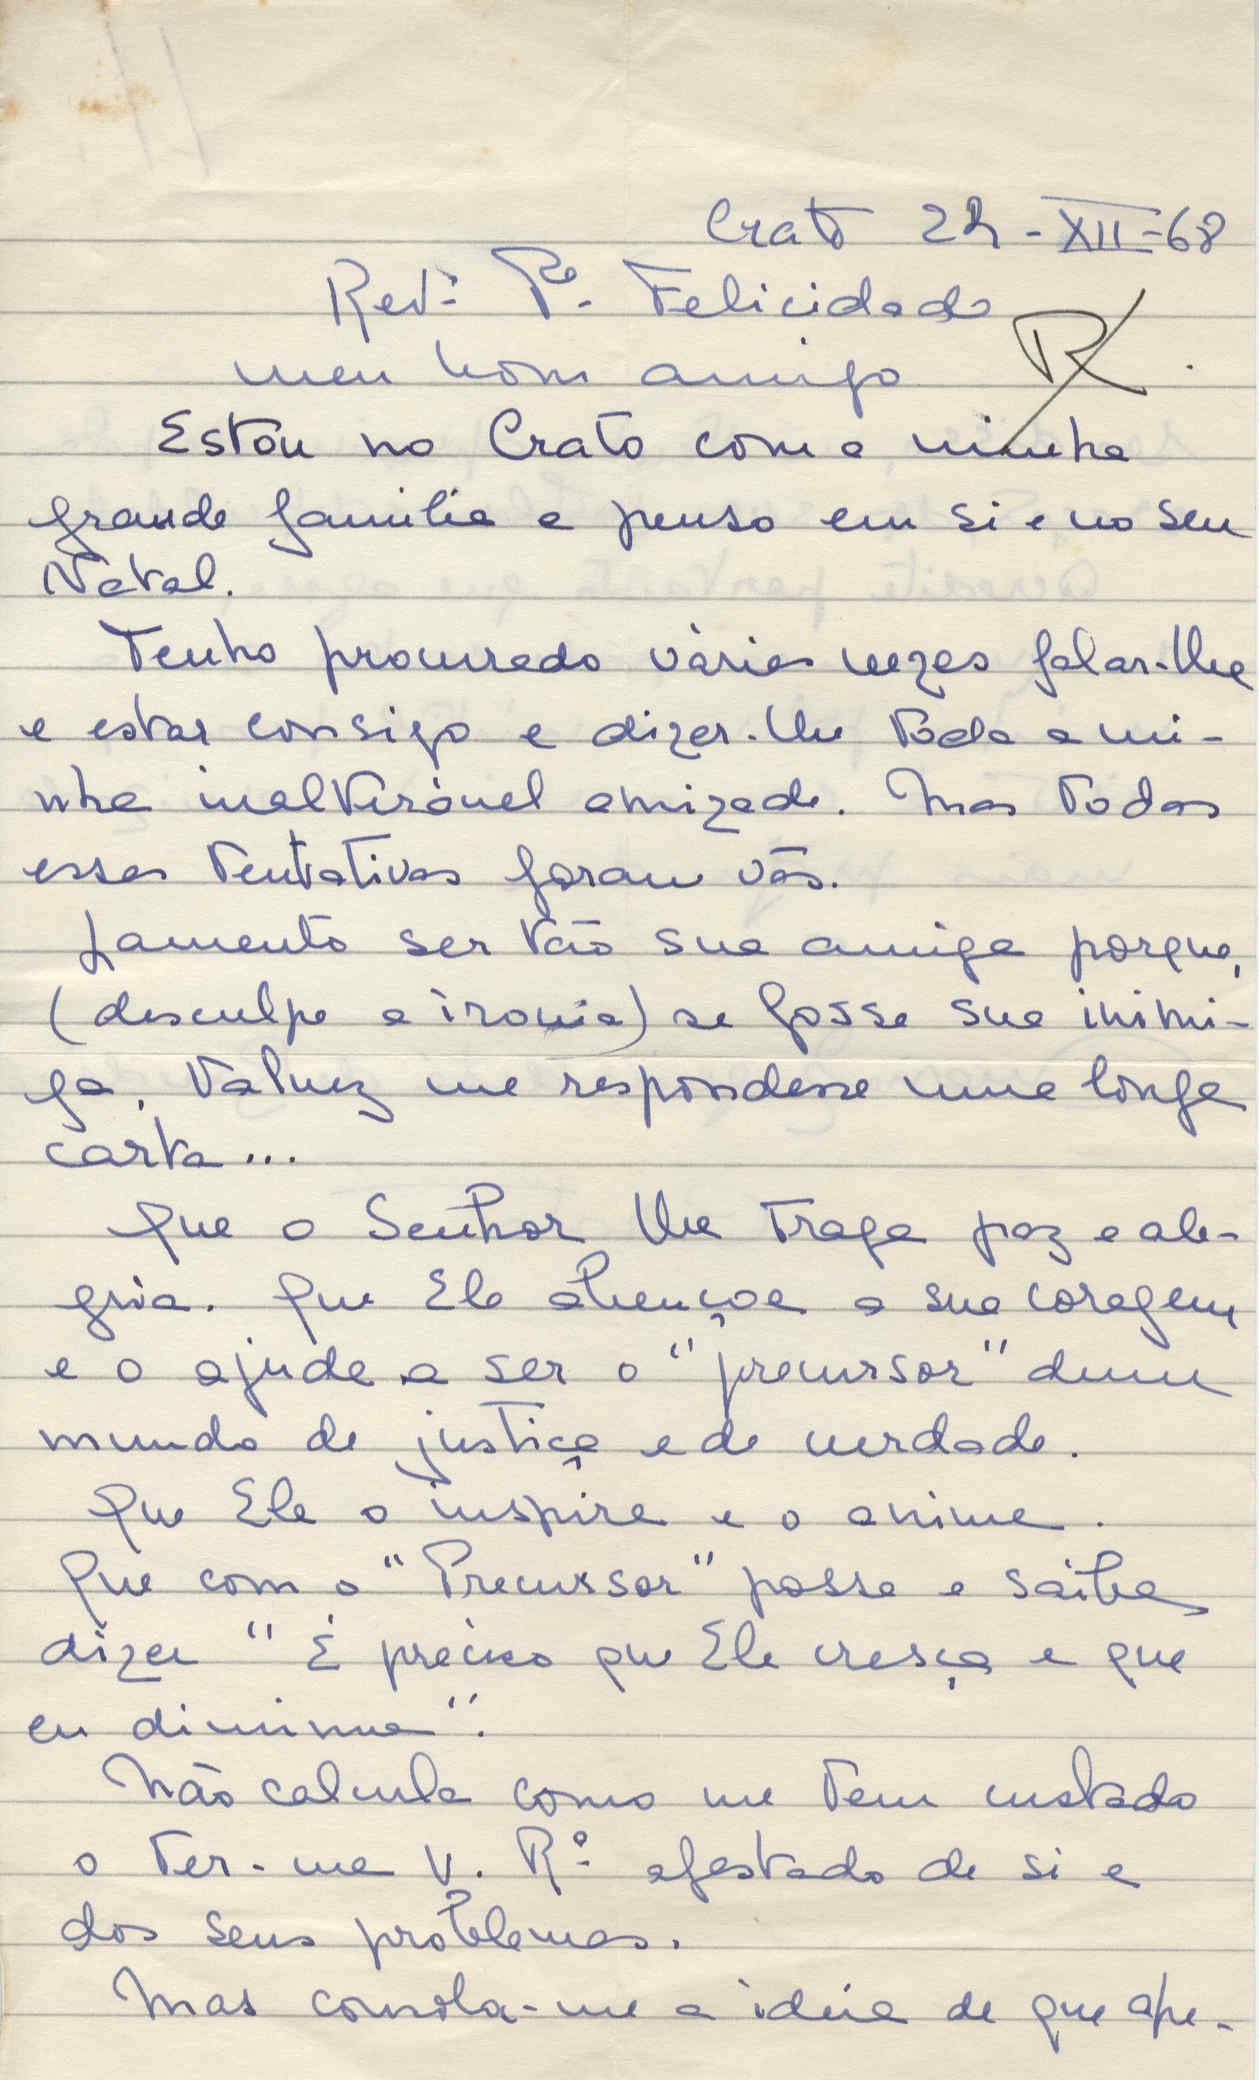 Crato 24-XII-68
Revº. Pe. Felicidade
meu bom amigo
R
Estou no Crato com a minha
grande familia e penso em si e no seu
Natal.
Tenho procurado várias vezes falar-lhe
e estar consigo e dizer-lhe toda a mi-
nha inalterável amizade. Mas todas
essas tentativas foram vãs.
Lamento ser tão sua amiga porque,
(desculpe a ironia) se fosse sua inimi-
ga, talvez me respondesse uma longa
carta...
Que o Senhor lhe traga paz e ale-
gria. Que Ele abençoe a sua coragem
e o ajude a ser o "precursor" dum
mundo de justiça e de verdade.
Que Ele o inspire e o anime.
Que com o "Precursor" possa e saiba
dizer "É preciso que Ele cresça e que
eu diminua".
Não calcula como me tem custado
o ter-me V. Rº. afastado de si e
dos seus problemas.
Mas consola-me a ideia de que ape-